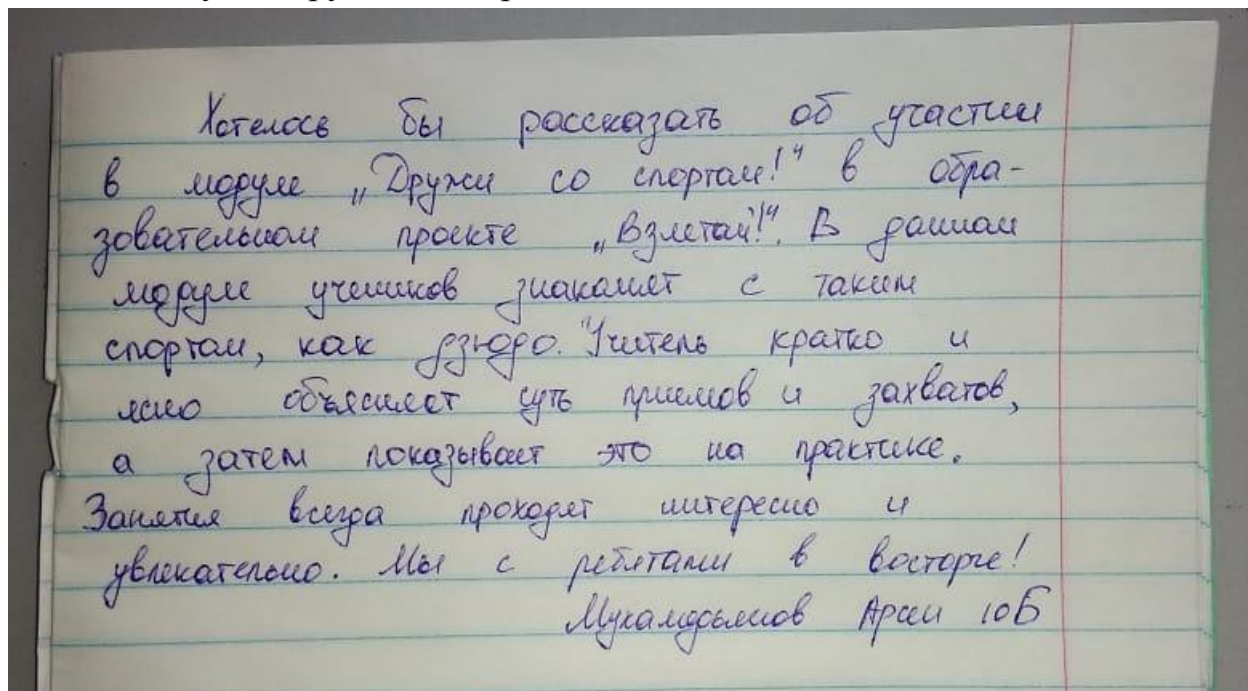 Хотелось бы рассказать об участии
в модуле „Дружи со спортом!“ в обра-
зовательном проекте „Взлетай!“. В данном
модуле учеников знакомят с таким
спортом, как дзюдо. Учитель кратко и
ясно объясняет суть приемов и захватов,
а затем показывает это на практике.
Занятия всегда проходят интересно и
увлекательно. Мы с ребятами в восторге!
10Б